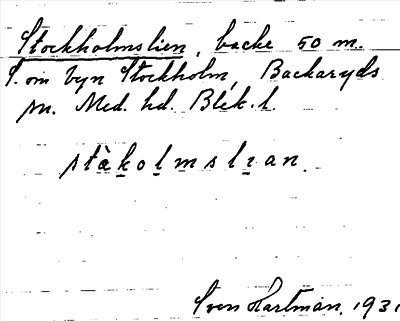 Stockholmslien, backe 50 m.
S. om byn Stockholm, Backaryds
sn. Med. hd. Blek. l.
stàkolmslian.
Sven Hartman, 1931